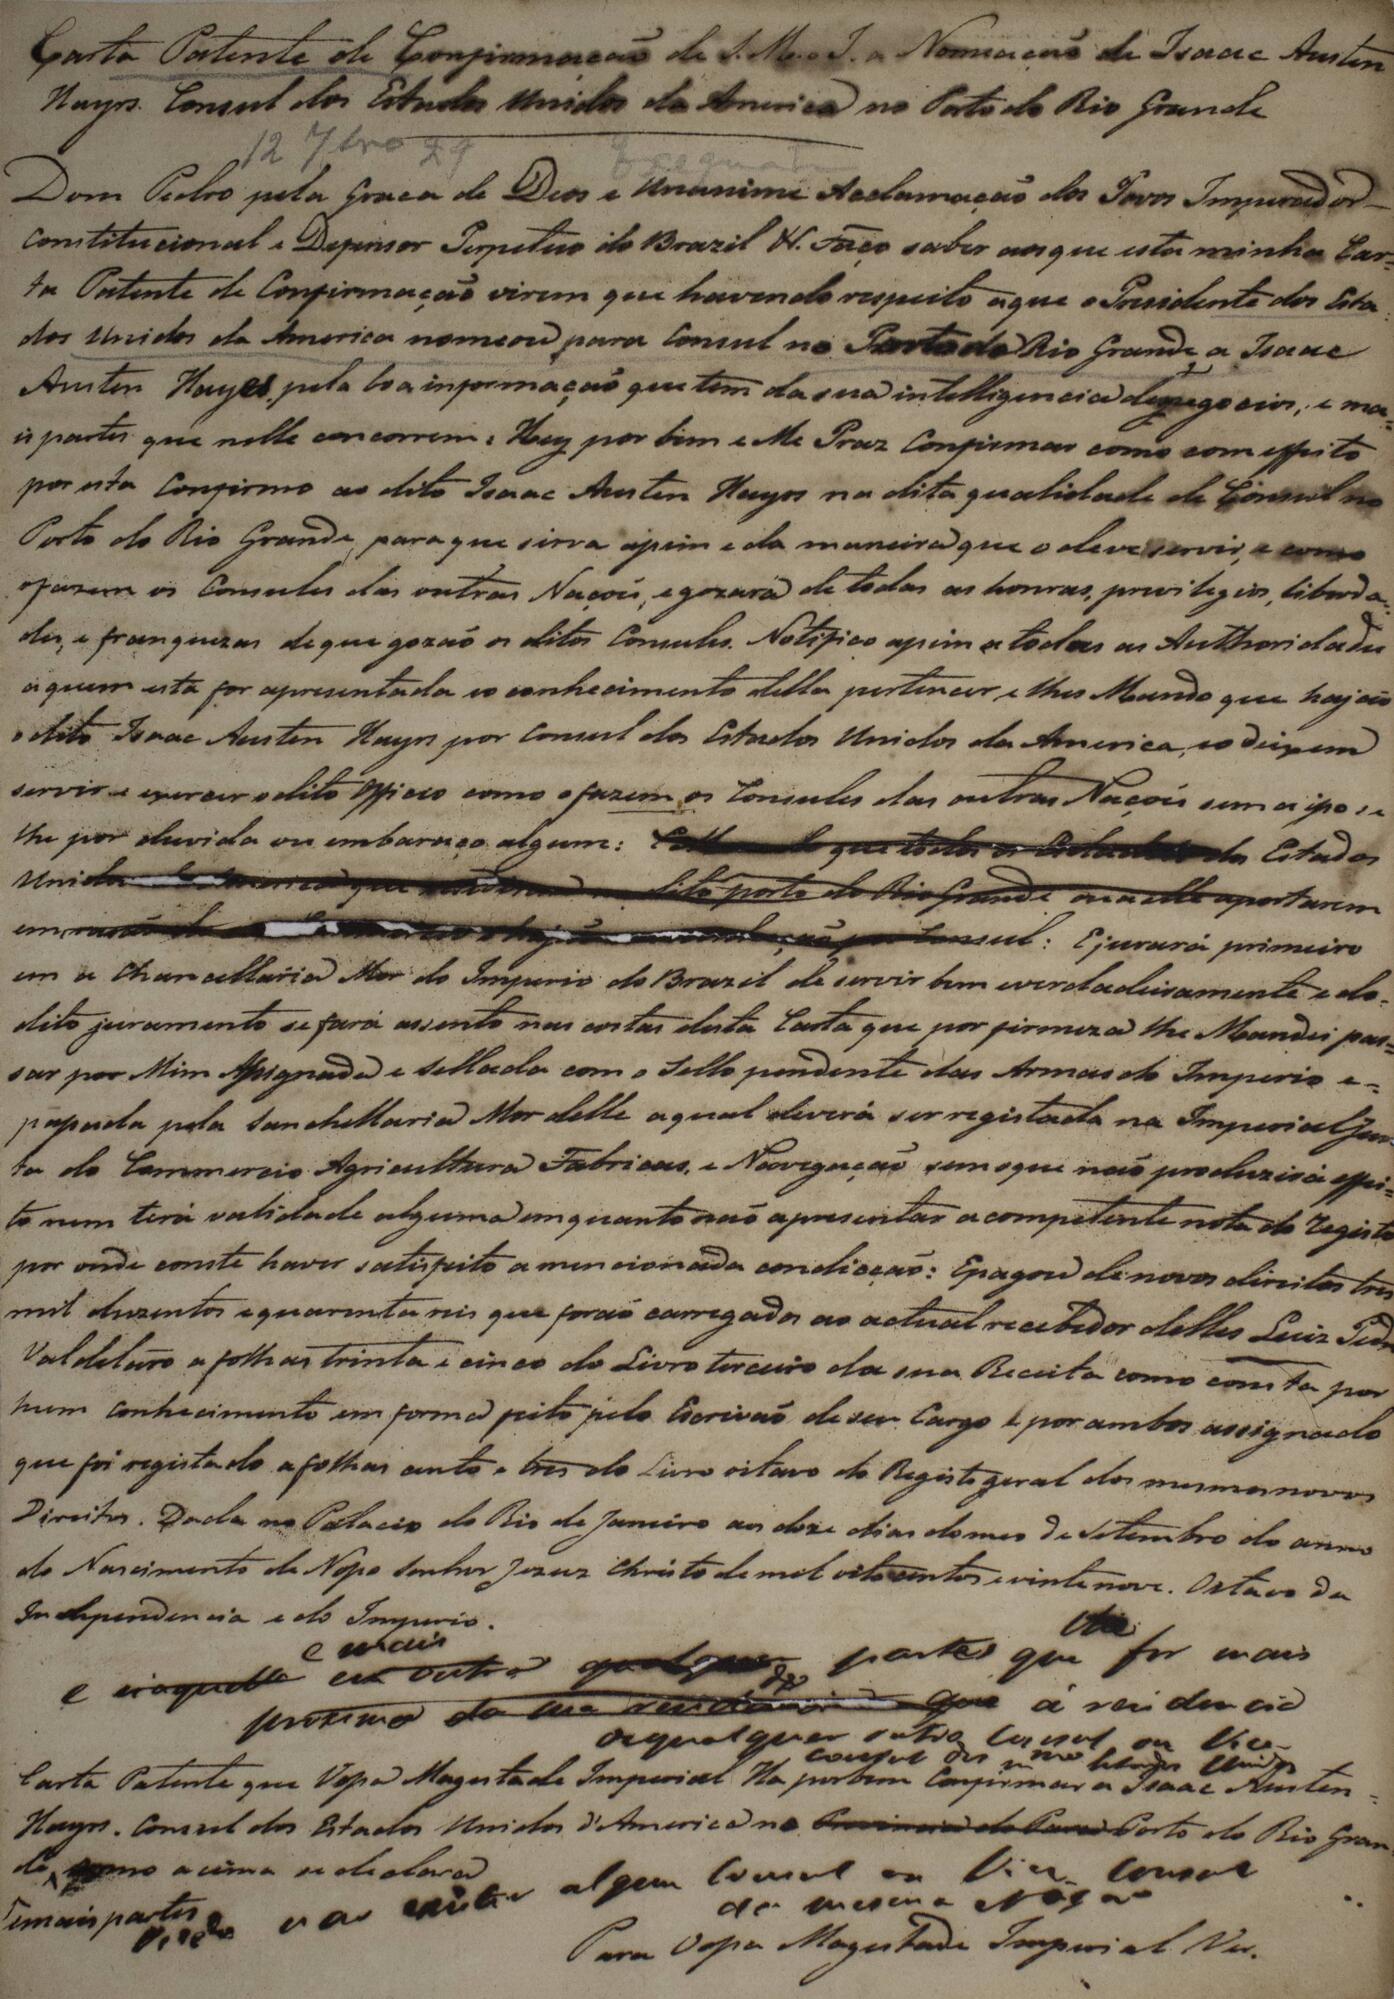 Carta Patente de Confirmação de S. M. o I. a Nomeação de Isaac Austen
Hayes. Consul dos Estados Unidos da America no Porto do Rio Grande
12 7bro 29 Exequatur
Dom Pedro pela Graca de Deos e Unanime Acclamação dos Povos Imperador
Constitucional e Defensor Perpetuo do Brazil &. Faço saber aos que esta minha Car-
ta Patente de Confirmação virem que havendo respeito a que o Presidente dos Esta-
dos Unidos da America nomeou para Consul no Porto do Rio Grande a Isaac
Austen Hayes, pela boa informação que tem da sua intelligencia de negocios, e ma-
is partes que nelle concorrem: Hey por bem e Me Praz Confirmar como com effeito
por esta Confirmo ao dito Isaac Austen Hayes na dita qualidade de Consul no
Porto do Rio Grande, para que sirva assim e da maneira que o deve servir, e como
o fazem os Consules das outras Nações, e gozará de todas as honras, previlegios, liberda-
des, e franquezas de que gozaõ os ditos Consules. Notifico assim a todas as Authoridades
a quem esta for apresentada e o conhecimento della pertencer e lhes Mando que hajaõ
o dito Isaac Austen Hayes por Consul dos Estados Unidos da America, e o deixem
servir e exercer o dito Officio como o fazem os Consules das outras Nações sem a isso se
lhe por duvida ou embaraço algum: que todos os Cidadãos dos Estados
Unidos da America que dito porto do Rio Grande ou a elle aportarem
em razaõ do Consul: E jurará primeiro
em a Chancellaria Mor do Imperio do Brazil de servir bem e verdadeiramente e do
dito juramento se fará assento nas costas desta Carta que por firmeza lhe Mandei pas-
sar por Mim Assignada e sellada com o Sello pendente das Armas do Imperio e-
passada pela Canchellaria Mor delle a qual deverá ser registada na Imperial Jun-
ta do Commercio Agricultura Fabricas, e Navegação sem o que naõ produzirá effei-
to nem terá validade alguma em quanto naõ apresentar a competente nota do Registo
por onde conste haver satisfeito a mencionada condicçaõ: E pagou de novos direitos tres
mil duzentos e quarenta reis que foraõ carregados ao actual recebedor delles Luiz Pedr
a folhas trinta e cinco do Livro terceiro da sua Receita como consta por
hum conhecimento em forma feito pelo Escrivaõ de seu Cargo e por ambos assignado
que foi registado a folhas cento e tres do Livro oitavo do Registo geral dos mesmos novos
Direitos. Dada no Palacio do Rio de Janeiro aos doze dias do mes de Setembro do anno
do Nascimento de Nosso Senhor Jezuz Christo de mil oito centos e vinte nove. Oitavo da
Independencia e do Imperio.
e mais
e naquella ou outra qualquer partes que for mais
proximo da sua residencia que á residencia
de qualquer outro Consul ou Vice-
consul dos mmos Estados Unidos
Carta Patente que Vossa Magestade Imperial Ha por bem Confirmar a Isaac Austen-
Hayes. Consul dos Estados Unidos d'America na Provincia do Pará Porto do Rio Gran-
de, como acima se declara
e mais partes
onde naõ existir algum Consul ou Vice-Consul
da mesma Naçaõ
Para Vossa Magestade Imperial Ver.